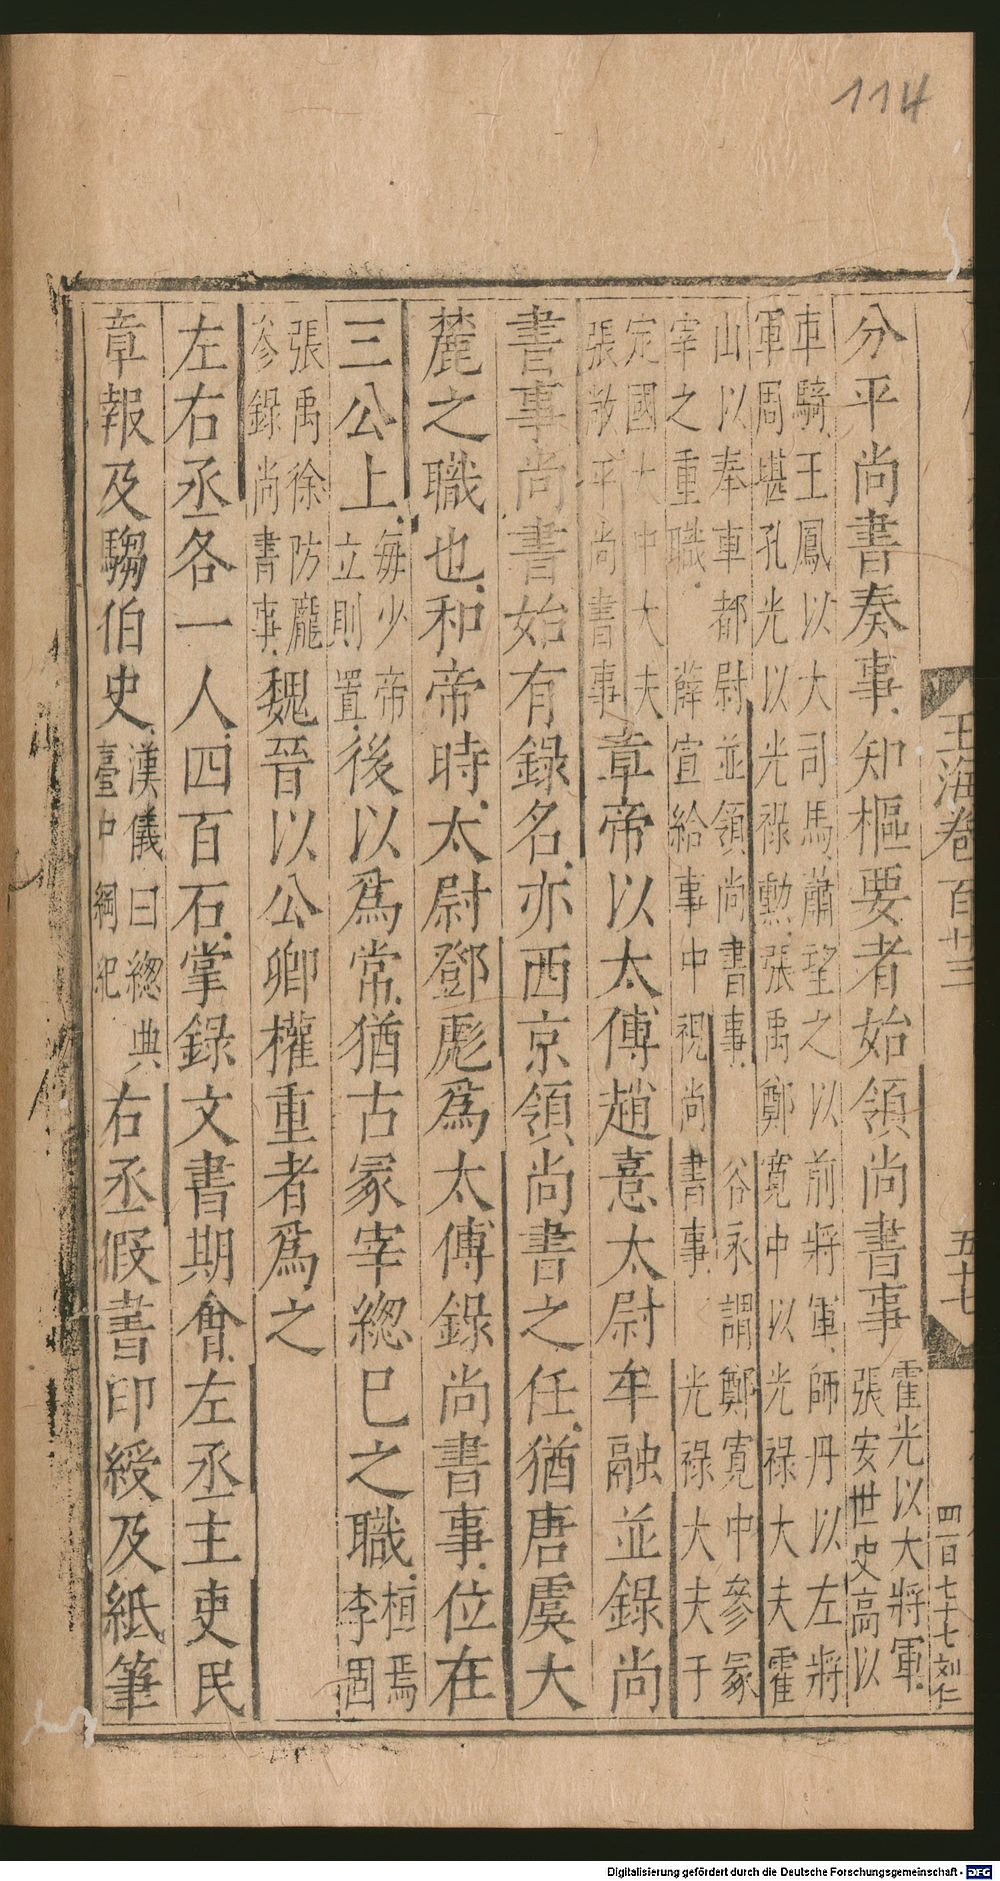 114
玉海卷百廿三
五十七
四百七十七 刘仁
分平尚書奏事知樞要者始領尚書事霍光以大將軍張安世史高以
車騎王鳳以大司馬蕭望之以前將軍師丹以左將
軍周堪孔光以光祿勲張禹鄭寛中以光祿大夫霍
山以奉車都尉並領尚書事谷永謂鄭寛中參冢
宰之重職薛宣給事中視尚書事光祿大夫于
定國大中大夫
張敞平尚書事章帝以太傅趙憙太尉牟融並錄尚
書事尚書始有錄名亦西京領尚書之任猶唐虞大
麓之職也和帝時太尉鄧彪爲太傅錄尚書事位在
三公上每少帝立則置後以爲常猶古冢宰緫已之職桓焉李固
張禹徐防龐
參錄尚書事魏晉以公卿權重者爲之
左右丞各一人四百石掌錄文書期會左丞主吏民
章報及騶伯史漢儀曰緫典臺中綱紀右丞假書印綬及紙筆
Digitalisierung gefördert durch die Deutsche Forschungsgemeinschaft - DFG